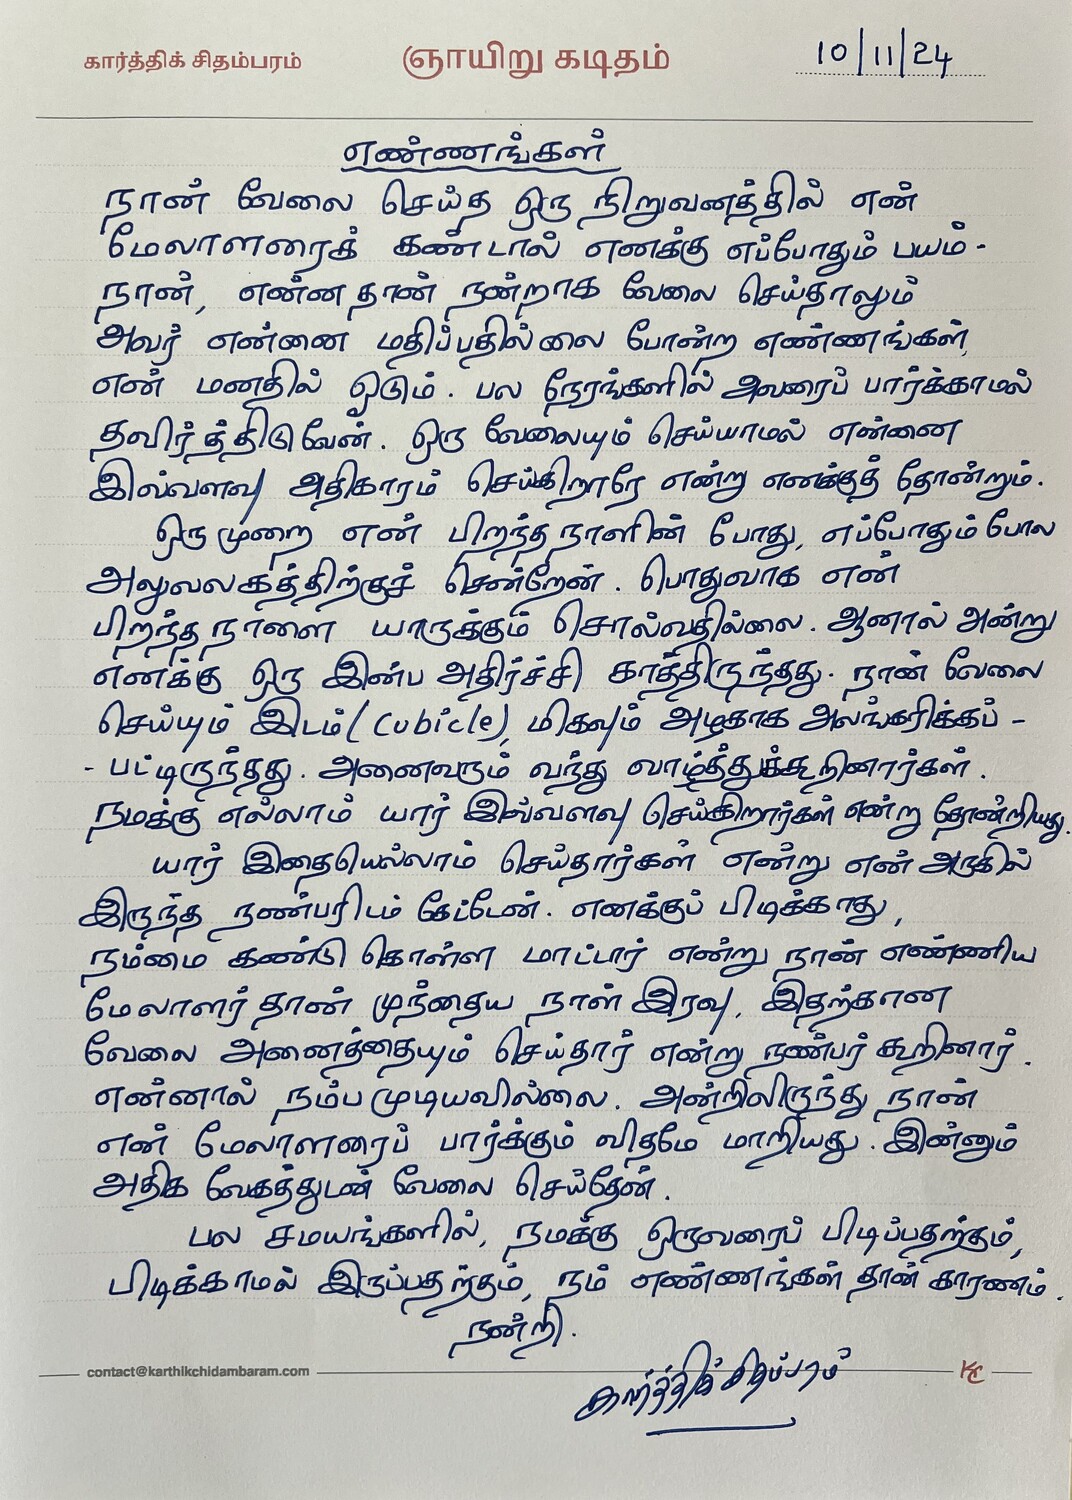 கார்த்திக் சிதம்பரம் ஞாயிறு கடிதம் 10/11/24
எண்ணங்கள்
நான் வேலை செய்த ஒரு நிறுவனத்தில் என்
மேலாளரைக் கண்டால் எனக்கு எப்போதும் பயம்-
நான், என்னதான் நன்றாக வேலை செய்தாலும்
அவர் என்னை மதிப்பதில்லை போன்ற எண்ணங்கள்,
என் மனதில் ஓடும். பல நேரங்களில் அவரைப் பார்க்காமல்
தவிர்த்திடுவேன். ஒரு வேலையும் செய்யாமல் என்னை
இவ்வளவு அதிகாரம் செய்கிறாரே என்று எனக்குத் தோன்றும்.
ஒருமுறை என் பிறந்தநாளின் போது, எப்போதும் போல
அலுவலகத்திற்குச் சென்றேன். பொதுவாக என்
பிறந்தநாளை யாருக்கும் சொல்வதில்லை. ஆனால் அன்று
எனக்கு ஒரு இன்ப அதிர்ச்சி காத்திருந்தது. நான் வேலை
செய்யும் இடம் (cubicle), மிகவும் அழகாக அலங்கரிக்கப் -
- பட்டிருந்தது. அனைவரும் வந்து வாழ்த்துக்கூறினார்கள்.
நமக்கு எல்லாம் யார் இவ்வளவு செய்கிறார்கள் என்று தோன்றியது.
யார் இதையெல்லாம் செய்தார்கள் என்று என் அருகில்
இருந்த நண்பரிடம் கேட்டேன். எனக்குப் பிடிக்காது,
நம்மை கண்டு கொள்ள மாட்டார் என்று நான் எண்ணிய
மேலாளர் தான் முந்தைய நாள் இரவு, இதற்கான
வேலை அனைத்தையும் செய்தார் என்று நண்பர் கூறினார்.
என்னால் நம்பமுடியவில்லை. அன்றிலிருந்து நான்
என் மேலாளரைப் பார்க்கும் விதமே மாறியது. இன்னும்
அதிக வேகத்துடன் வேலை செய்தேன்.
பல சமயங்களில், நமக்கு ஒருவரைப் பிடிப்பதற்கும்,
பிடிக்காமல் இருப்பதற்கும், நம் எண்ணங்கள் தான் காரணம்.
நன்றி.
contact@karthikchidambaram.com KC
கார்த்திக் சிதம்பரம்